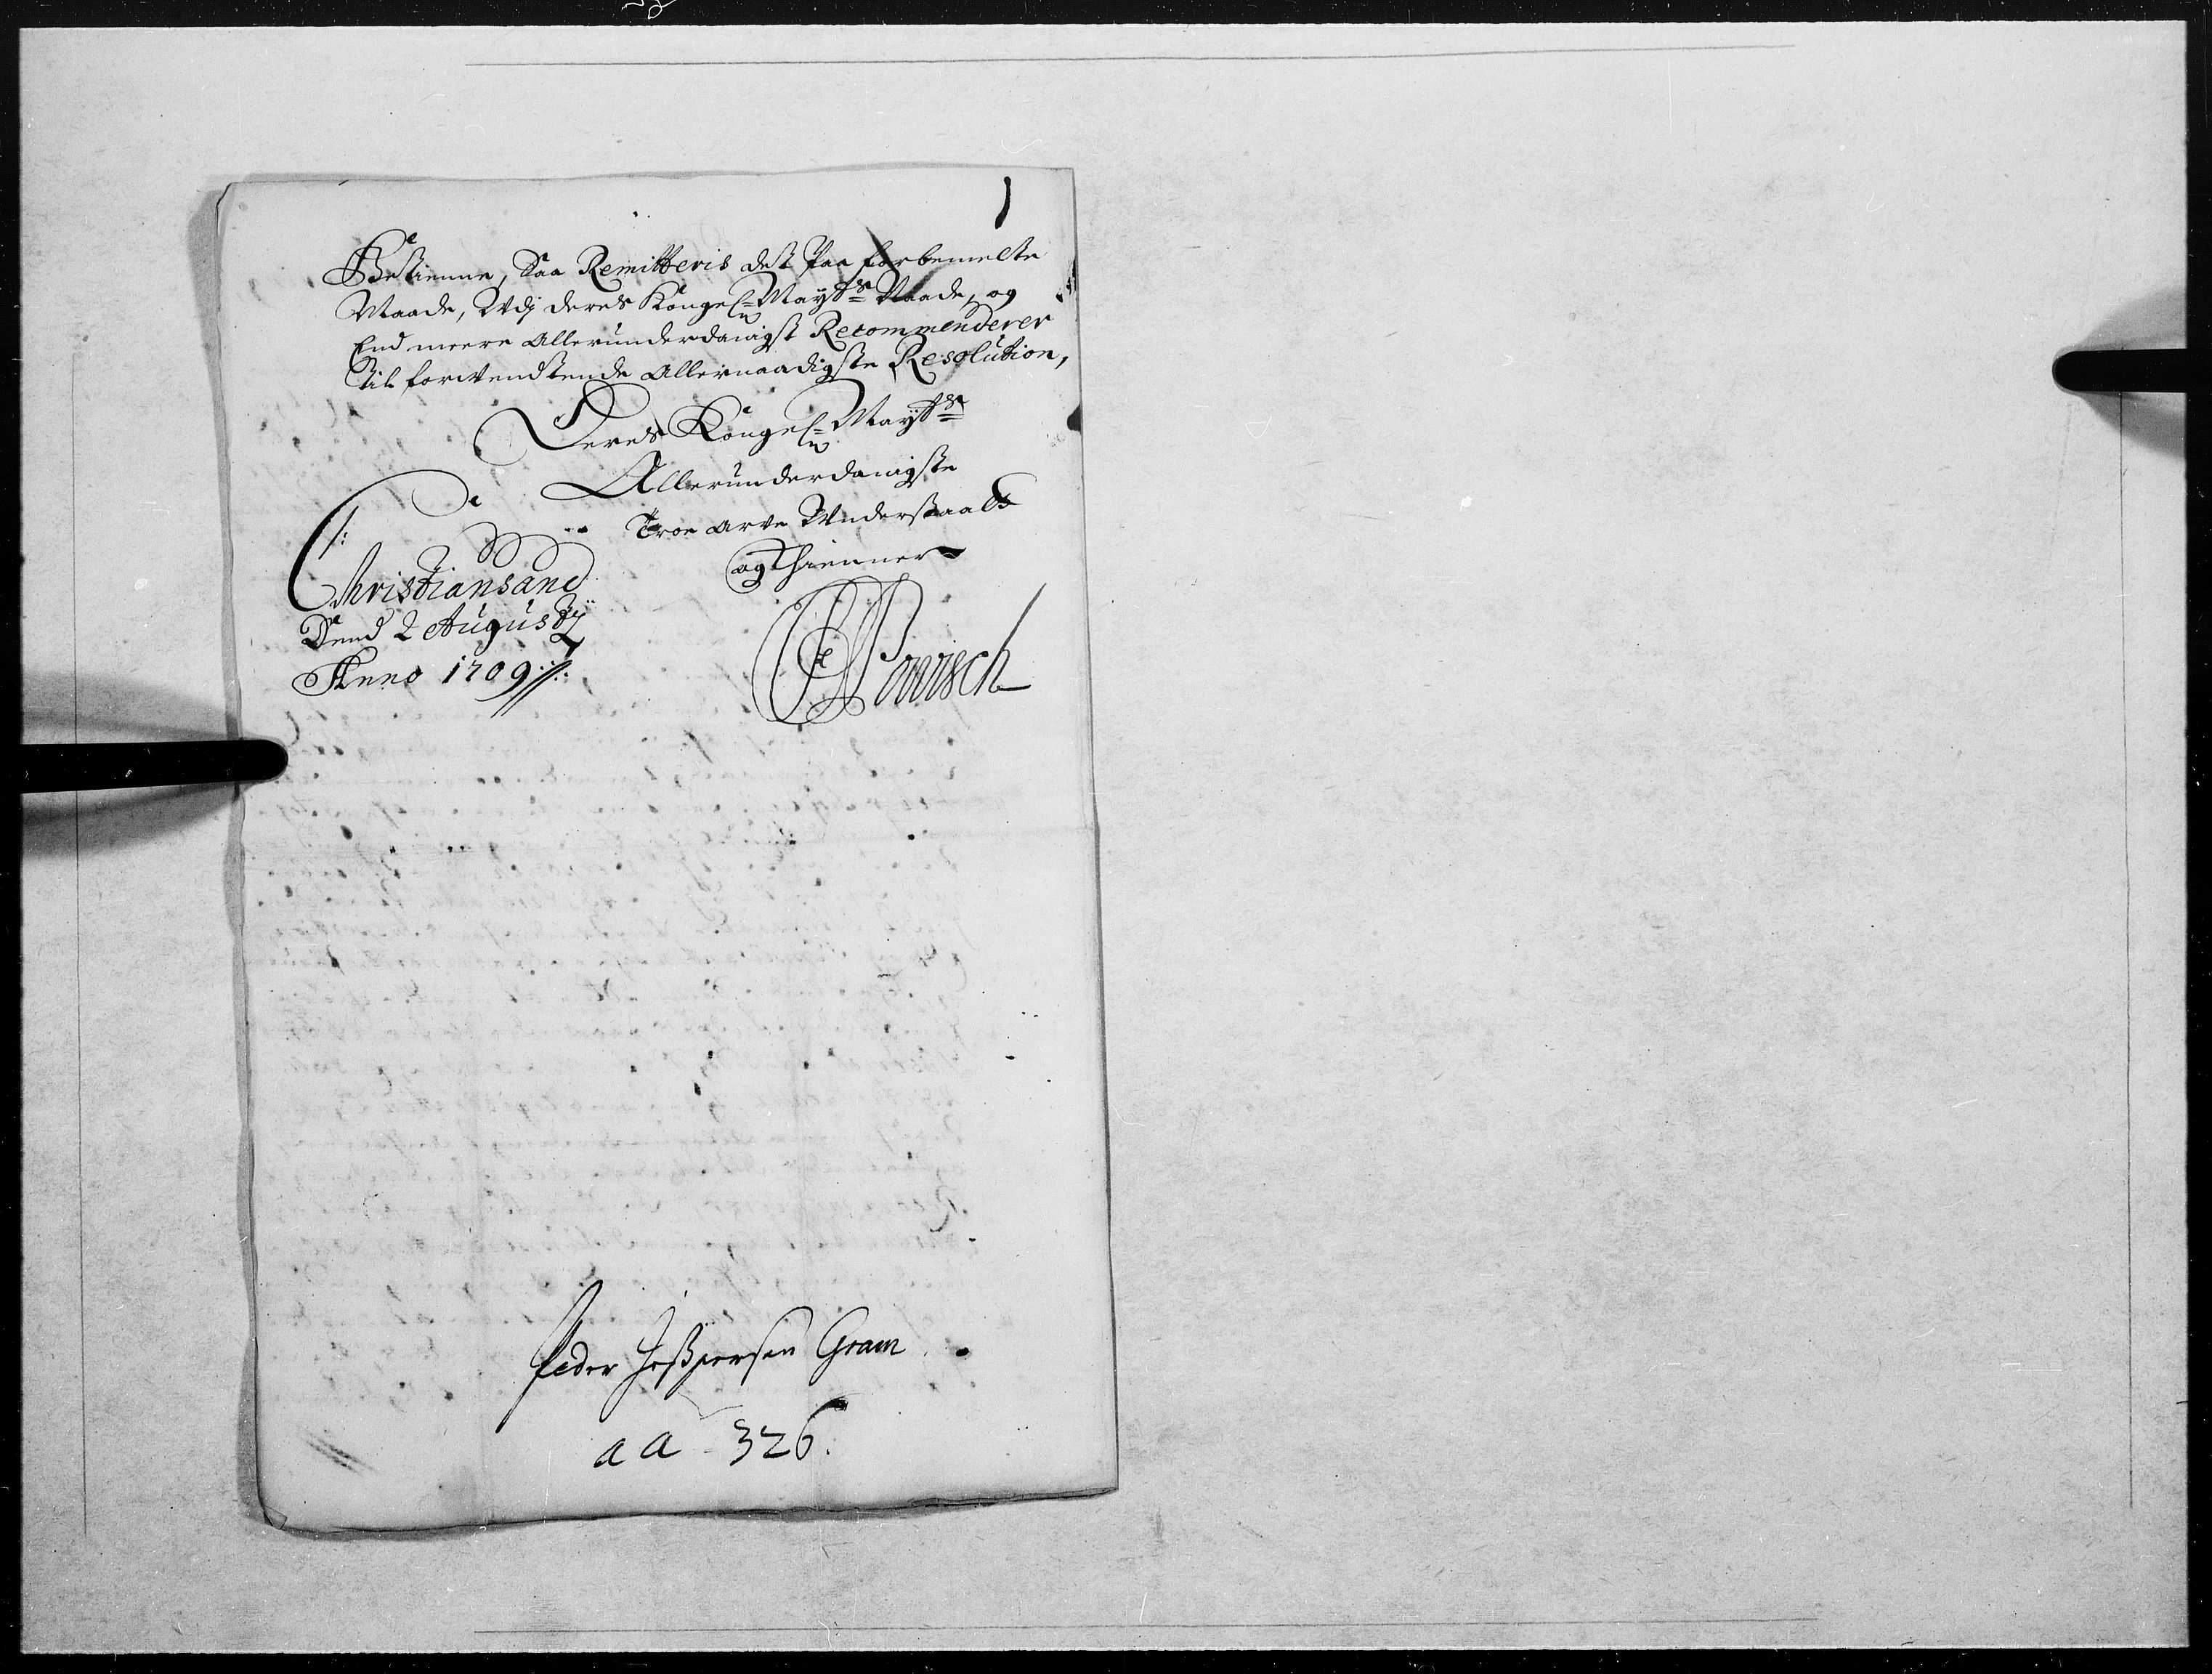 1
Betienne, Saa Remitteris det Paa forbemelte
Maade, Udj deres Kongel: Mayts Naade, og
End meere Allerunderdanigst Recommenderer
til forventende Allernaadigste Resolution,
Deres Kongel: Mayts
Allerunderdanigste
Troe arve Understaalt
og Thienner
Christiansand
Dend 2 Augustj
Anno 1709
Powisch
Peder Jeßpersen Gram
aa - 326.